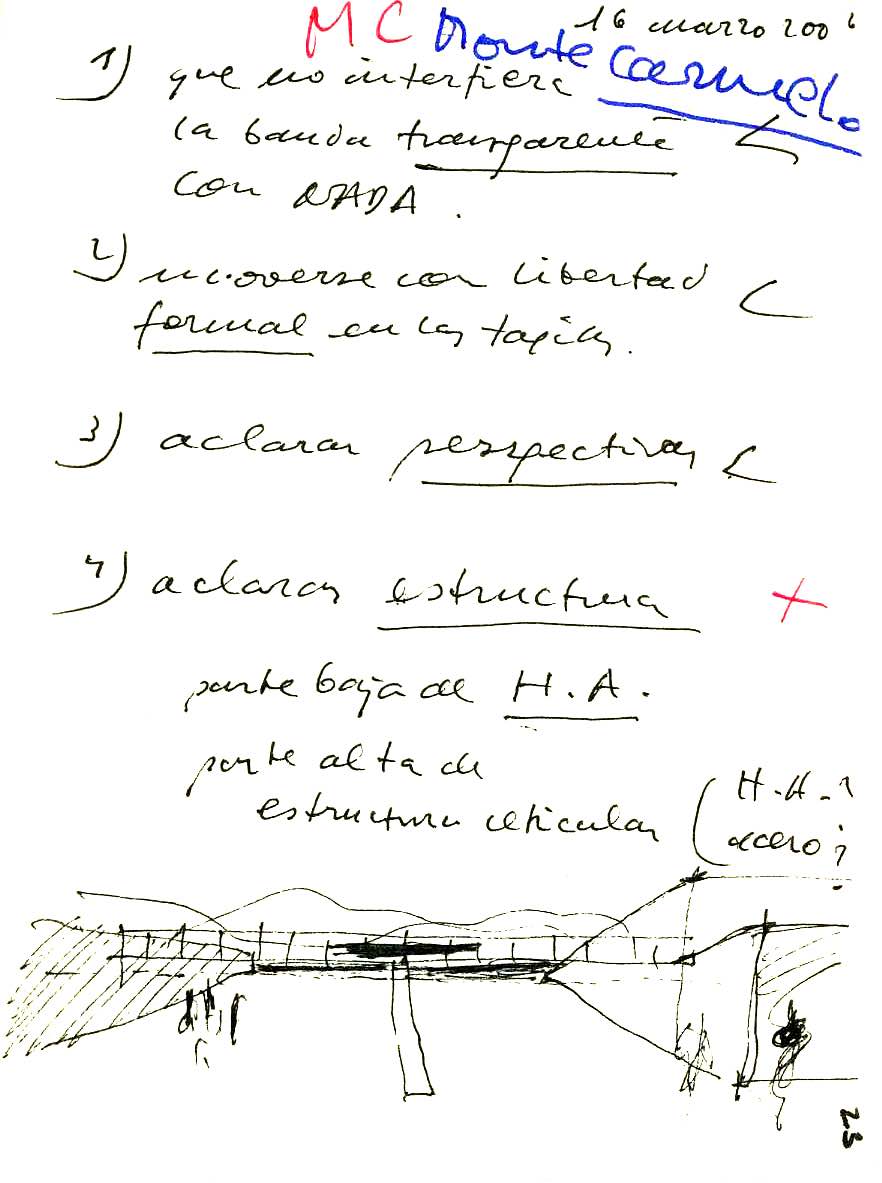 16 marzo 200
MC Monte Carmelo
1) que no interfiera
la banda transparente
con NADA.
2) moverse con libertad
formal en las tapias.
3) aclarar perspectivas
4) aclarar estructura +
parte baja de H.A.
parte alta de
estructura reticular
H.A.?
acero?
23